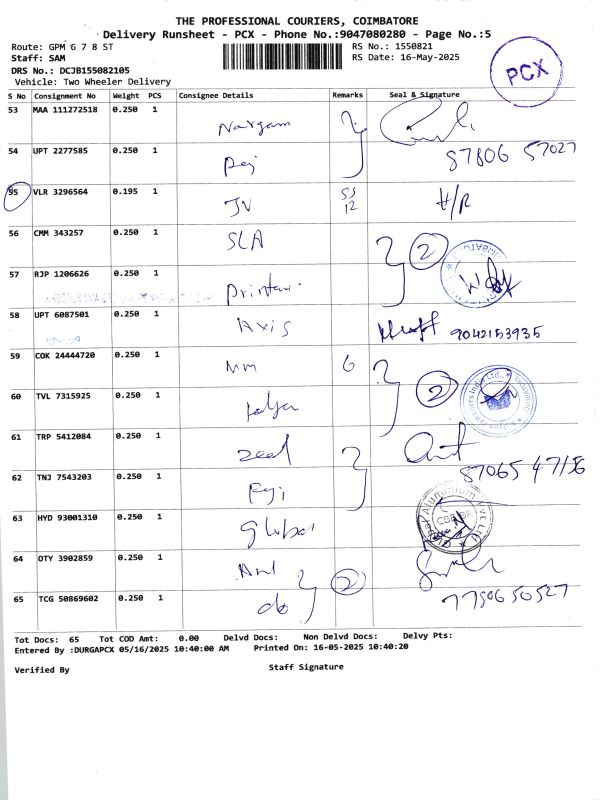 THE PROFESSIONAL COURIERS, COIMBATORE
Delivery Runsheet - PCX - Phone No.:9047080280 - Page No.:5
Route: GPM 6 7 8 ST
RS No.: 1550821
Staff: SAM
RS Date: 16-May-2025
DRS No.: DCJB155082105
Vehicle: Two Wheeler Delivery
PCX
S No Consignment No Weight PCS Consignee Details Remarks Seal & Signature
53 MAA 111272518 0.250 1
54 UPT 2277585 0.250 1 87806 57027
55 VLR 3296564 0.195 1 JV 53 12 H/R
56 CMM 343257 0.250 1 SLA 2
57 RJP 1206626 0.250 1
58 UPT 6087501 0.250 1 Axis 9042153935
59 COK 24444720 0.250 1 MM 6
60 TVL 7315925 0.250 1 2
61 TRP 5412084 0.250 1 zeal
62 TNJ 7543203 0.250 1 87065 47156
63 HYD 93001310 0.250 1 Global
64 OTY 3902859 0.250 1 2
65 TCG 50869602 0.250 1 do 7750650527
Tot Docs: 65 Tot COD Amt: 0.00 Delvd Docs: Non Delvd Docs: Delvy Pts:
Entered By :DURGAPCX 05/16/2025 10:40:00 AM Printed On: 16-05-2025 10:40:20
Verified By
Staff Signature